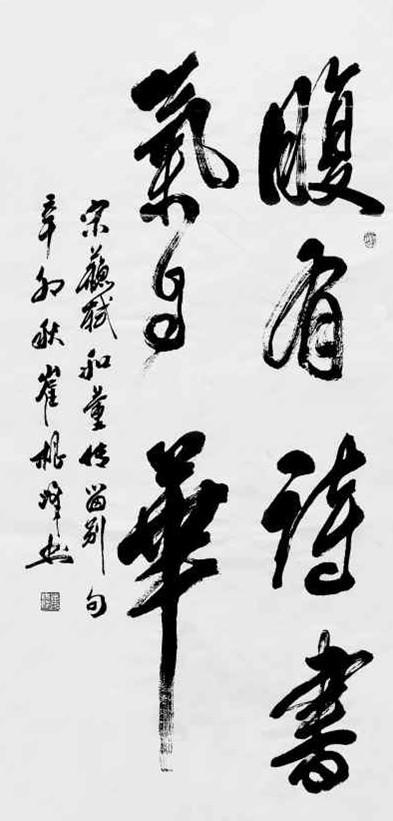 腹有詩書
氣自華
宋蘇軾和董傳留別句
辛卯秋崔根峰书